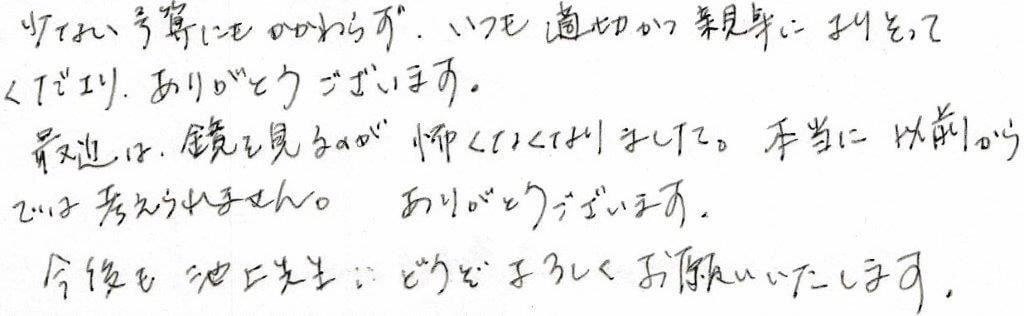 少ない予算にもかかわらず、いつも適切かつ親身によりそって
くださり、ありがとうございます。
最近は、鏡を見るのが怖くなくなりました。本当に以前から
では考えられません。ありがとうございます。
今後も池上先生にどうぞよろしくお願いいたします。